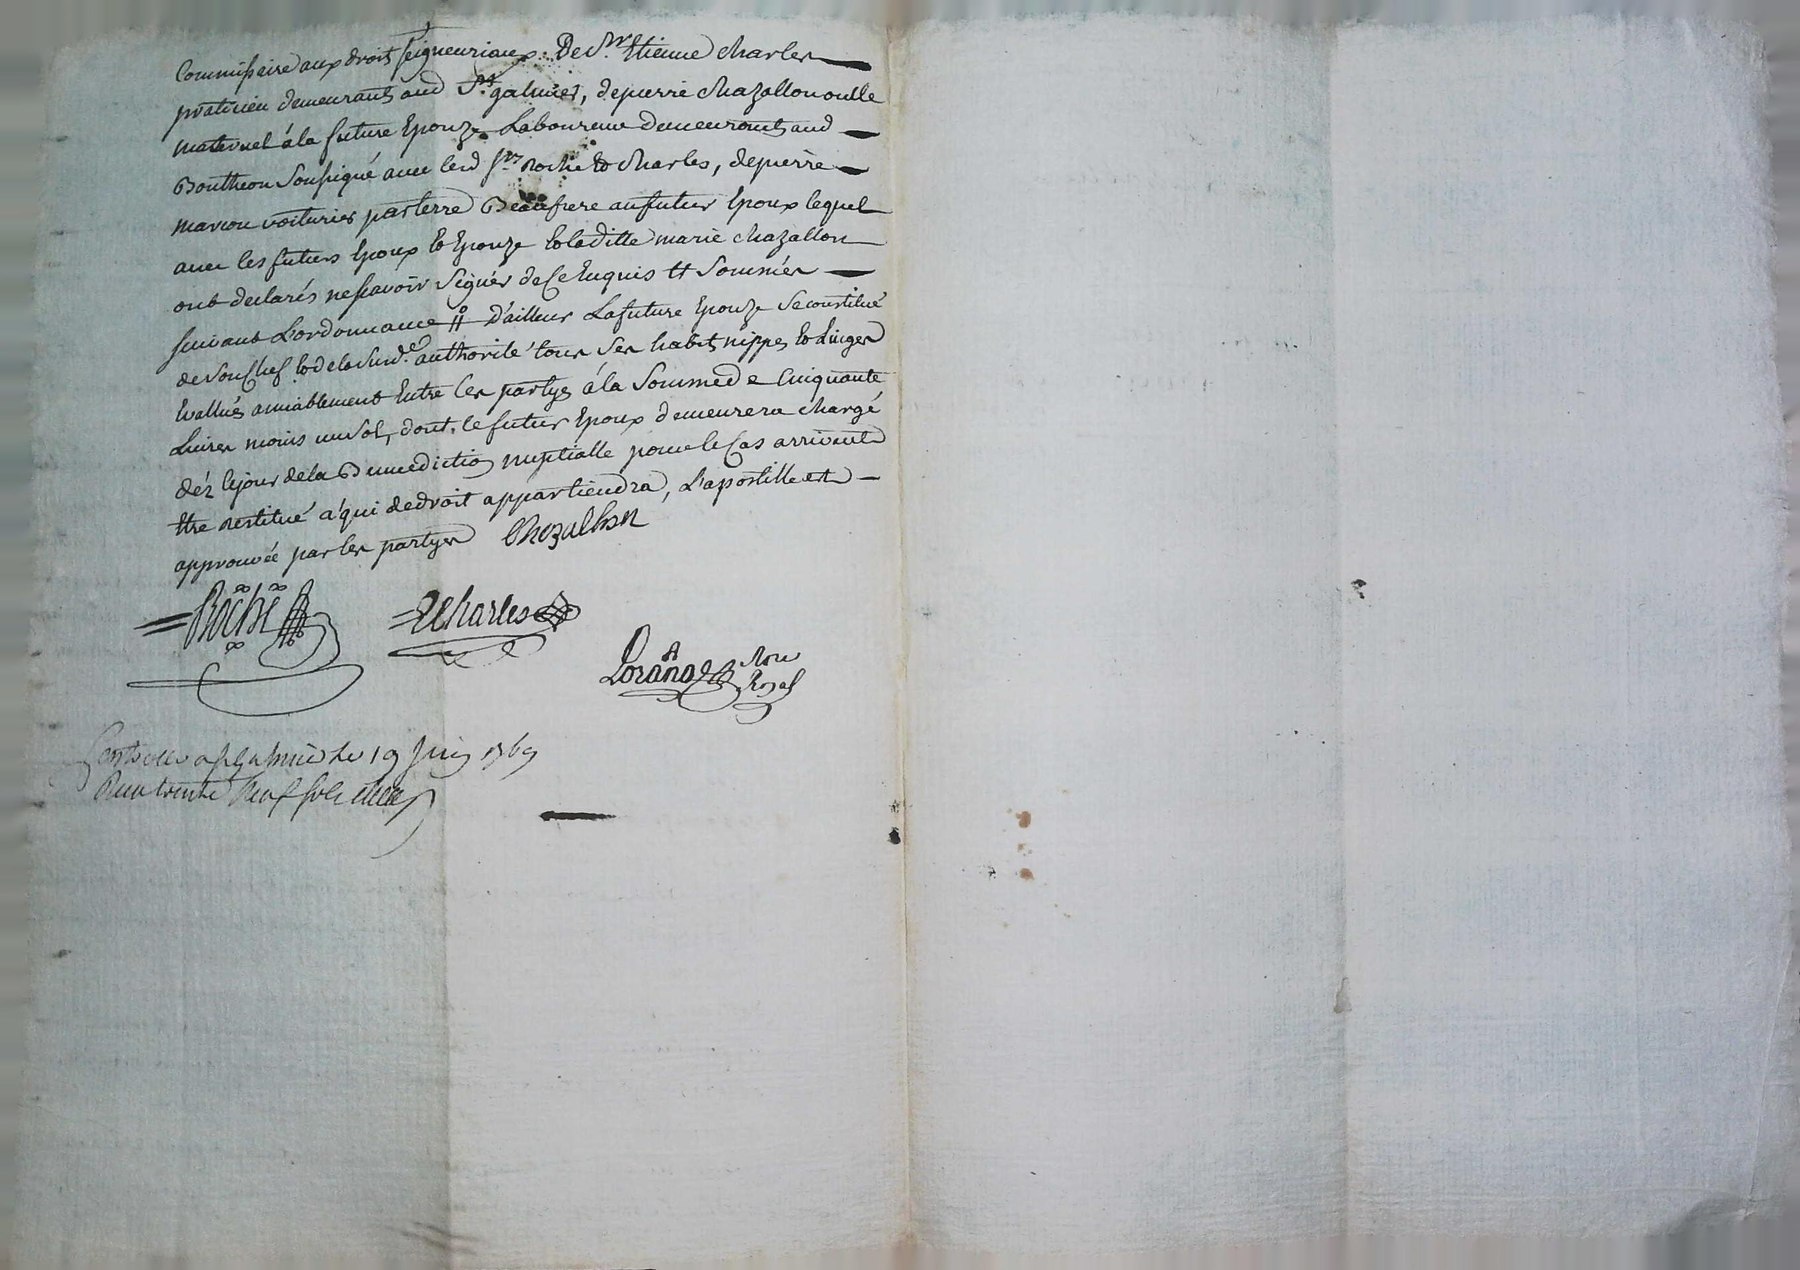 Commissaire aux droits seigneuriaux. De Sr. Etienne Charles
praticien demeurant aud St. galmier, de pierre Chazallon oncle
maternel á la future Epouze Laboureur demeurant aud
Bouthéon Soussigné avec lesd Srs. Roche Et Charles, de pierre
marcou voiturier par terre Beaufrere au futur Epoux lequel
avec les futurs Epoux Et Epouze Et laditte marie Chazallon
ont declarés ne scavoir Signér de Ce Enquis Et Sommés
suivant L'ordonnance # D'ailleur La future Epouze Se constitué
de Son Chef Et de lad Susd.e authorité tous Ses habits nippes Et Linges
Evallués amiablement Entre les partyes á la Somme de Cinquante
Livres moins un Sol, dont le futur Epoux demeurera Chargé
déz le jour de la Bennediction nuptialle pour le Cas arrivant
Etre restitué á qui de droit appartiendra, L'apostille est
approuvée par les partyes Chozallon
Roche
Charles
Not
Royal
Controllé a St Galmier le 19 Juin 1769
Reçu trente Neuf sols